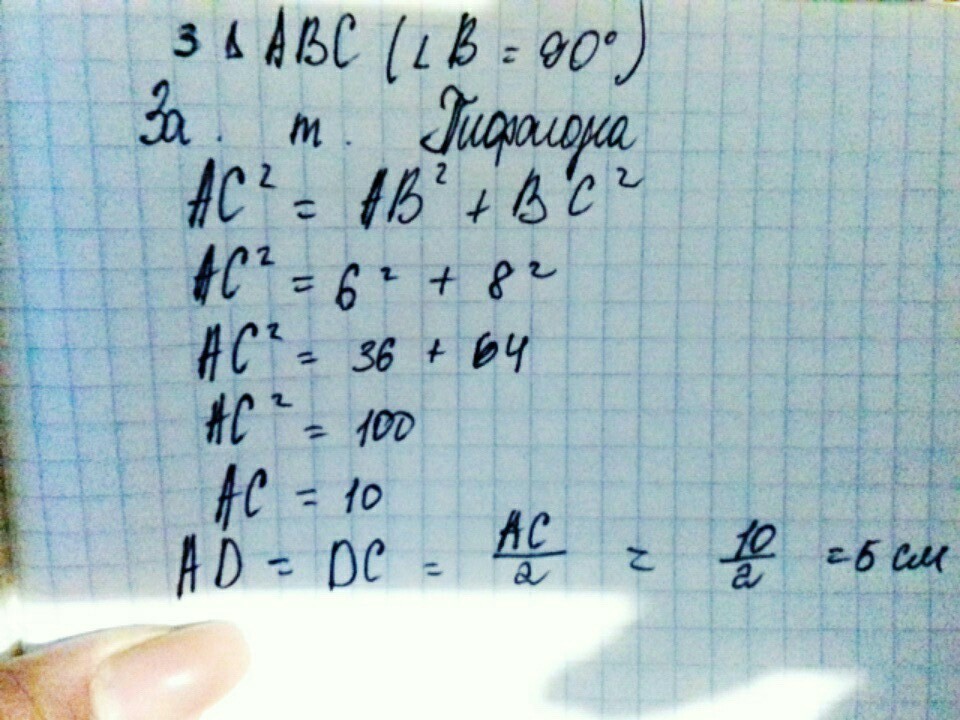 з Δ ABC (∠B = 90°)
За. т. Піфагора
AC² = AB² + BC²
AC² = 6² + 8²
AC² = 36 + 64
AC² = 100
AC = 10
AD = DC = AC/2 = 10/2 = 5 см